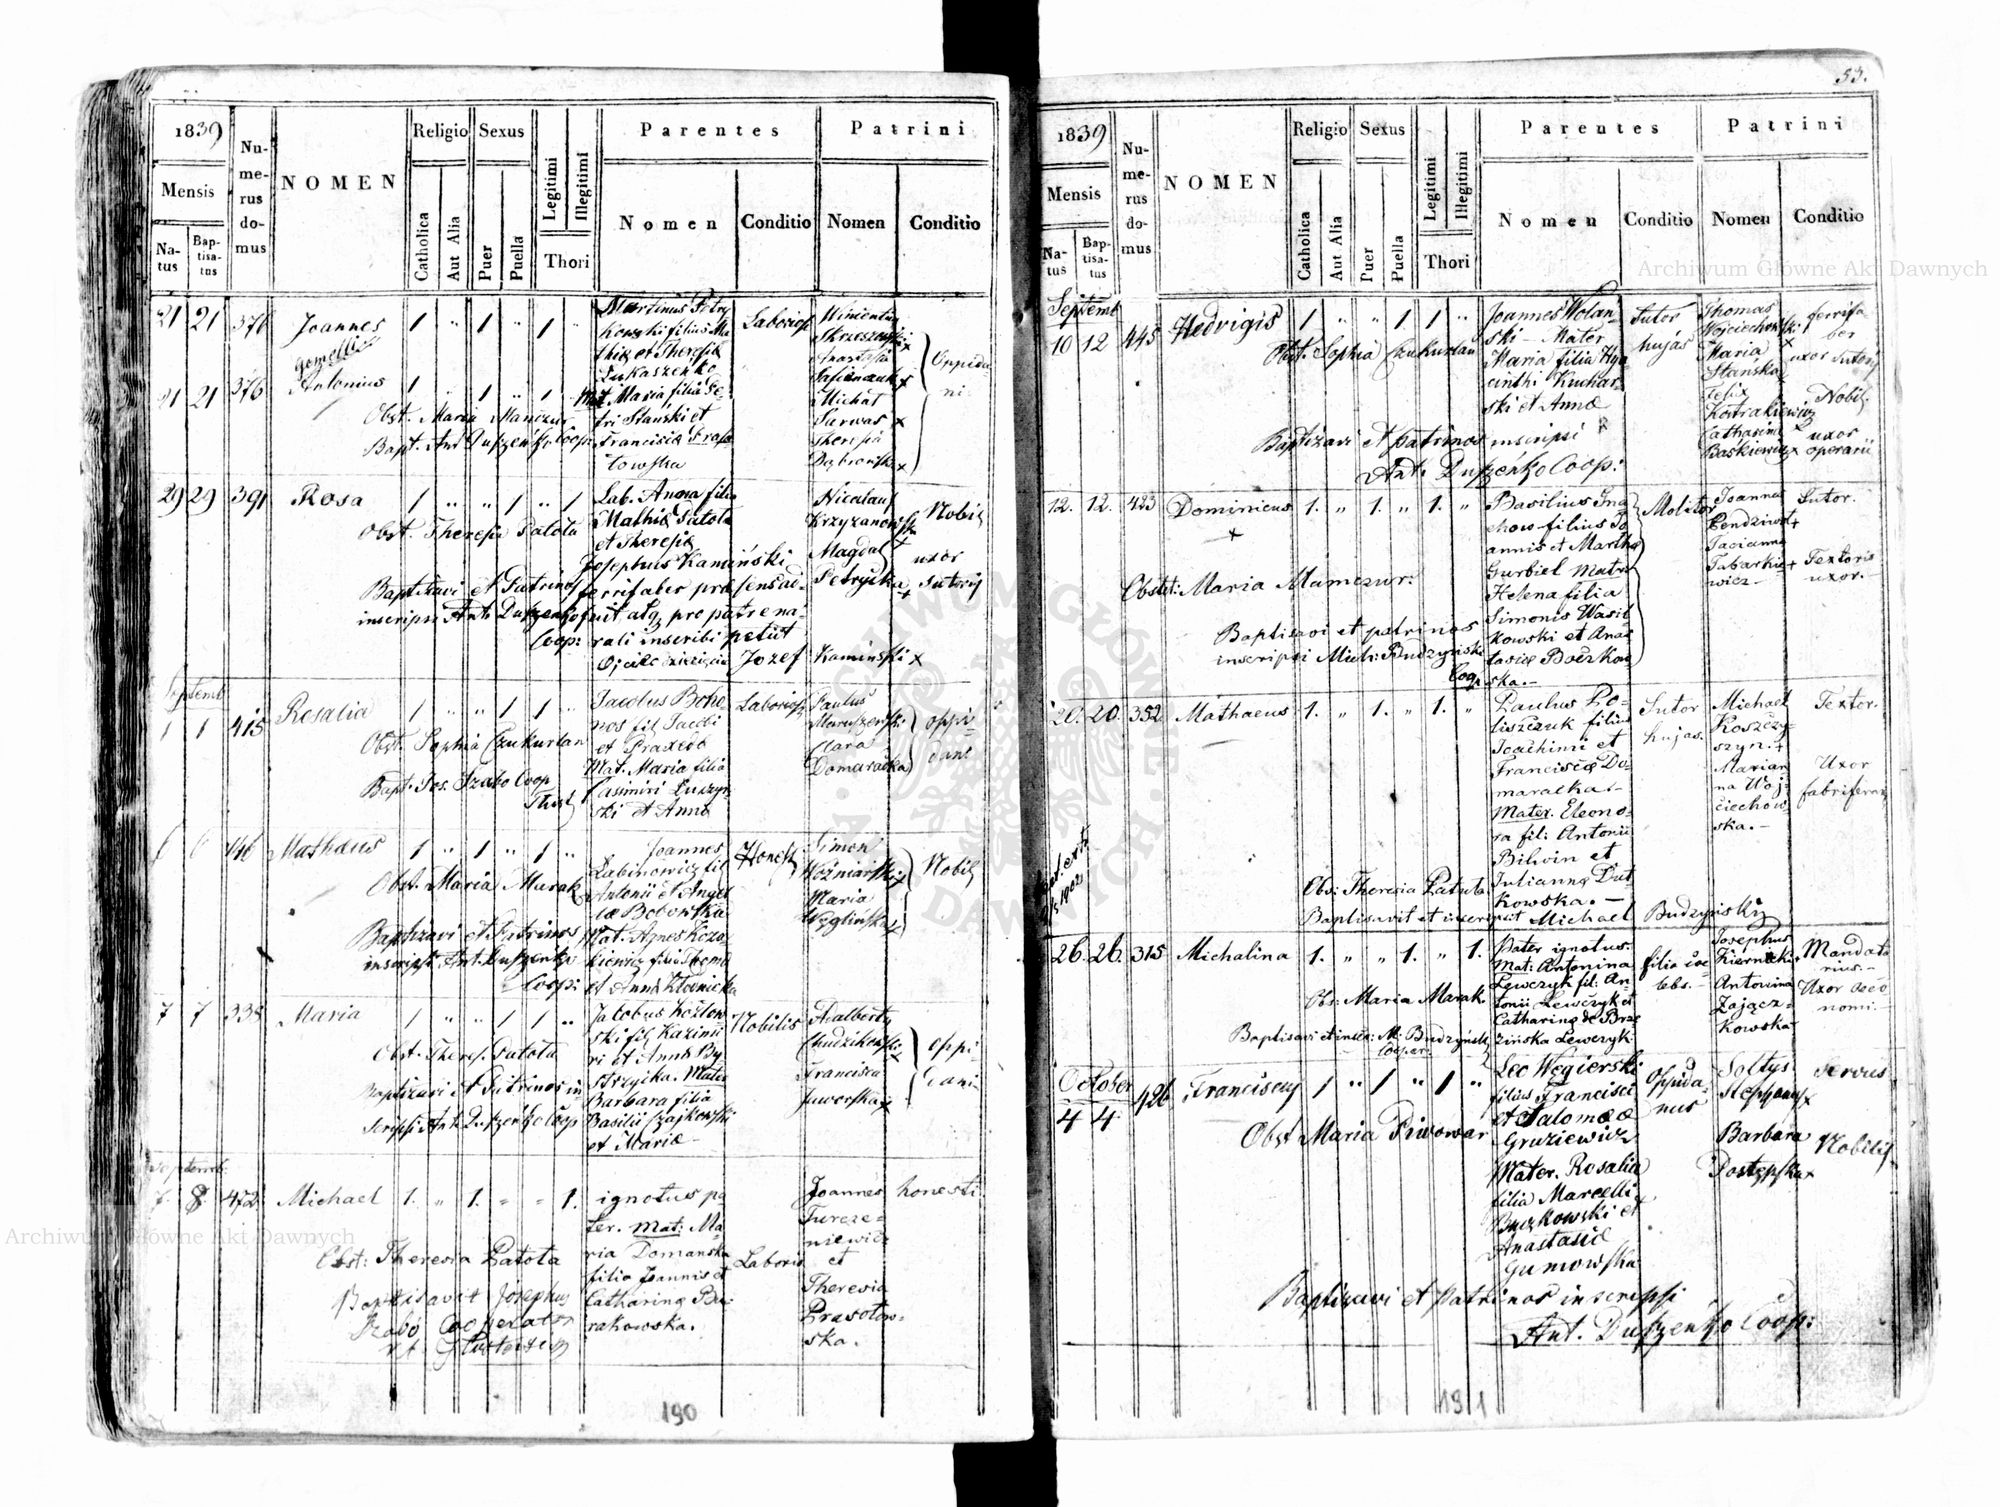 1839
Mensis
Na-
tus
Bap-
tisa-
tus
Nu-
me-
rus
do-
mus
NOMEN
Religio
Catholica
Aut Alia
Sexus
Puer
Puella
Legitimi
Illegitimi
Thori
Parentes
Nomen
Conditio
Patrini
Nomen
Conditio
21 21 376 Joannes 1 " 1 " 1 "
gemelli
21 21 376 Antonius 1 " 1 " 1
Obst. Maria
Bapt. Ant. Duszeńko Coop:
Martinus
kowski filius Ma
thiæ et Theresiæ
Łukaszenko
Mat. Maria filia Pe-
tri Stański et
Franciscæ
towska
Laborios
Anastasia
Michał
Theresia
Dąbrowska x
Oppida
ni
29 29 391 Rosa 1 " " 1 " 1
Obst. Theresia Patota
Baptizavi et Patrinos
inscripsi Ant. Duszeńko
Coop:
Lab. Anna filia
Mathiæ Patota
et Theresiæ
Josephus Kamiński
ferrifaber præsens ad-
fuit atq pro patre na-
rali inscribi petiit
Ojciec dziecięcia Jozef Kamiński x
Nicolaus
Krzyzanowski
x
Magdal
Petrycka
Nobilis
uxor
sutoris
Septemb
1 1 415 Rosalia 1 " " 1 1 "
Obst. Sophia Czukurtan
Bapt. Jos. Szabo Coop
Jacobus Bohe
nos fil Jacobi
et Praxedæ
Mat. Maria filia
Casimiri
ski et Anna
Laborios
Paulus
Clara
Domaracka
oppi-
dani
6 6 446 Mathæus 1 " 1 " 1 "
Obst. Maria Marak
Baptizavi et Patrinos
inscripsi Ant. Duszeńko
Coop:
Joannes
Labinowicz fil
Antonii et Angel
læ Bobowska
Mat. Agnes Kozo
kiewicz filia
et Anna
Honest
Simon
Woźniarski x
Maria
Węglińska x
Nobil
7 7 338 Maria 1 " " 1 1 "
Obst. Theres. Patota
Baptizavi et Patrinos in
scripsi Ant. Duszeńko Coop
Jacobus Kozłow
ski fil Kazimi
ri et Anna By
strzycka. Mater
Barbara filia
Basilii Czajkowski
et Mariæ
Nobilis
Adalbertus
Chudzikowski
x
Francisca
Jaworska x
oppi
dani
Septemb.
7 8 472 Michael 1. " 1. " " 1.
Obst: Theresia Patota
Baptisavit Josephus
Szabo Cooperator
ignotus pa
ter. Mat: Ma
ria Domanska
filia Joannis et
Catharina Bu-
rakowska.
Laboris
Joannes
Turcze=
niewicz
et
Theresia
Prasołow-
ska.
honesti
190
53.
1839
Mensis
Na-
tus
Bap-
tisa-
tus
Nu-
me-
rus
do-
mus
NOMEN
Religio
Catholica
Aut Alia
Sexus
Puer
Puella
Legitimi
Illegitimi
Thori
Parentes
Nomen
Conditio
Patrini
Nomen
Conditio
Septemb
10 12 445 Hedvigis 1 " " 1 1 "
Obst. Sophia Czukurtan
Baptizavi et patrinos inscripsi
Ant. Duszeńko Coop:
Joannes Wolan-
ski – Mater
Maria filia Hya
cinthi Kuchar
ski et Anna
Sutor
hujás
Thomas
Wojciechowski
x
Maria
Stańska
Felix
Kostrakiewicz
x
Catharina
Baskiewicz x
ferrifa
ber
uxor sutoris
Nobil.
uxor
operarii
12. 12. 423 Dominicus 1. " 1. " 1. "
+
Obstet: Maria Mamczur:
Baptisavi et patrinos
inscripsi Mich: Budzyński
Coop
Basilius Gna
chow-filius Jo
annis et Martha
Gurbiel Mater
Helena filia
Simonis Wasil
kowski et Anas
tasiæ Boczkow
ska.–
Molitor
Joanna
Taciana
Tabarkie-
wicz–
Sutor.
Textoris
uxor.
20. 20. 352 Mathaeus 1. " 1. " 1. "
Obs: Theresia Patota
Baptisavit et inscripsit Michael Budzyński
Paulus Po-
liszczuk filius
Joachimi et
Francisca Do-
maracka.–
Mater. Eleono-
ra fil: Antonii
Bilwin et
Julianna Dut
kowska.–
Sutor
hujas.
Michael
Koszczy-
szyn.+
Marian
na Woj-
ciechow-
ska.–
Textor.
Uxor
fabriferar
26. 26. 315 Michalina 1. " " 1. " 1.
Obs: Maria Marak.
Baptisavi et inscr: M: Budzyński
Cooper:
Pater ignotus.
Mat: Antonina
Lewczyk fil: An-
tonii Lewczyk et
Catharina de Brze
zińska Lewczyk
filia cæ
lebs.–
Josephus
Kiernicki
Antonina
Zającz-
kowska
Mandata
rius.–
Uxor œco
nomi.–
October
4 4 426 Franciscus 1 " 1 " 1 "
Obst Maria Piwowar
Leo Węgierski
filius Francisci
et Salomææ
Gruziewicz
Mater. Rosalia
filia Marcelli
Buczkowski et
Anastasiæ
Gumowska
Oppida-
nus
Sołtys
Stephanus x
Barbara
Postępska x
Servus
Nobilis
Baptizavi et patrinos inscripsi
Ant. Duszeńko Coop:
191
Archiwum Główne Akt Dawnych
Archiwum Główne Akt Dawnych
ARCHIWUM GŁÓWNE AKT DAWNYCH